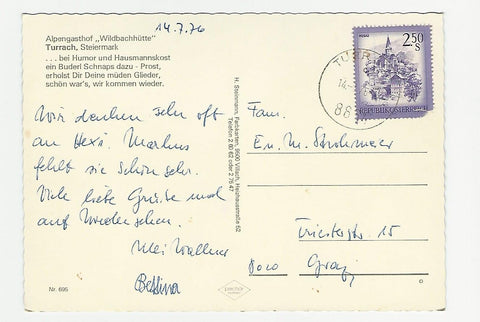 14.7.76
Alpengasthof „Wildbachhütte"
Turrach, Steiermark
. . . bei Humor und Hausmannskost
ein Buderl Schnaps dazu - Prost,
erholst Dir Deine müden Glieder,
schön war's, wir kommen wieder.
Wir denken sehr oft
an Hexi. Markus
fehlt sie schon sehr.
Viele liebe Grüße und
auf Wiedersehen.
Bettina
Nr. 695
H. Steinmann, Farbkarten, 9500 Villach, Heidenhausstraße 62
Telefon 2 60 62 oder 2 76 47
2.50
S
REPUBLIK ÖSTERREICH
TURR
14.
886
Fam.
E. u. M. Strohmeier
Triesterstr. 15
8020 Graz